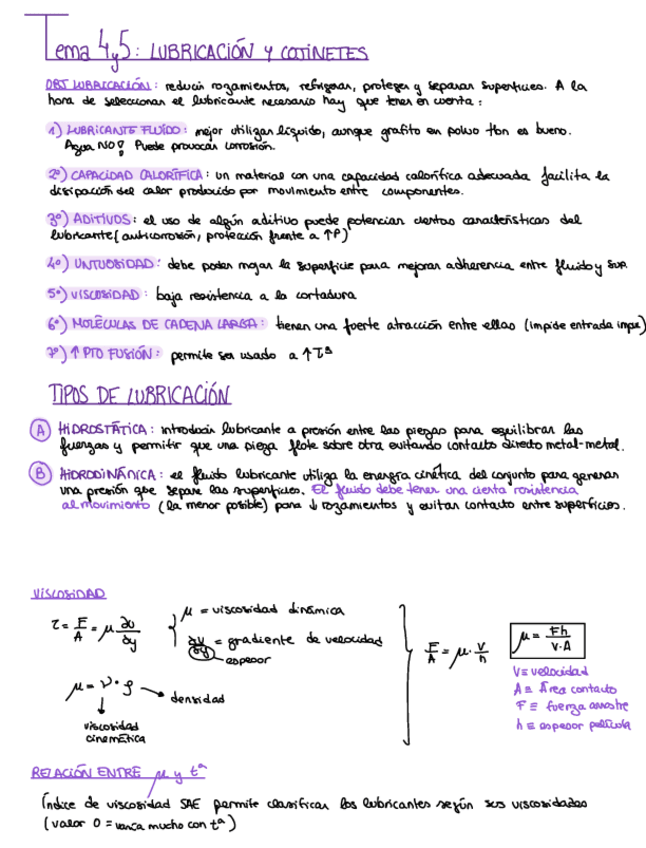 Tema 4y5: LUBRICACIÓN Y COJINETES
OBJ LUBRICACIÓN: reducir rozamientos, refrigerar, proteger y separar superficies. A la
hora de seleccionar el lubricante necesario hay que tener en cuenta:
1) LUBRICANTE FLUÍDO: mejor utilizar líquido, aunque grafito en polvo tbn es bueno.
Agua NO! Puede provocar corrosión.
2º) CAPACIDAD CALORÍFICA: un material con una capacidad calorífica adecuada facilita la
disipación del calor producido por movimiento entre componentes.
3º) ADITIVOS: el uso de algún aditivo puede potenciar ciertas características del
lubricante (anticorrosión, protección frente a ↑P)
4º) UNTUOSIDAD: debe poder mojar la superficie para mejorar adherencia entre fluido y sup.
5º) VISCOSIDAD: baja resistencia a la cortadura
6º) MOLÉCULAS DE CADENA LARGA: tienen una fuerte atracción entre ellas (impide entrada impu)
7º) ↑ PTO FUSIÓN: permite ser usado a ↑Tª
TIPOS DE LUBRICACIÓN
A HIDROSTÁTICA: introducir lubricante a presión entre las piezas para equilibrar las
fuerzas y permitir que una pieza flote sobre otra evitando contacto directo metal-metal.
B HIDRODINÁMICA: el fluido lubricante utiliza la energía cinética del conjunto para generar
una presión que separe las superficies. El fluido debe tener una cierta resistencia
al movimiento (la menor posible) para ↓ rozamientos y evitar contacto entre superficies.
VISCOSIDAD
τ = F/A = μ ∂v/∂y
μ = viscosidad dinámica
∂v/∂y = gradiente de velocidad
espesor
μ = ν · ρ → densidad
viscosidad
cinemática
F/A = μ · V/h
μ = Fh/V·A
V ≡ velocidad
A ≡ Área contacto
F ≡ fuerza arrastre
h ≡ espesor película
RELACIÓN ENTRE μ y tª
Índice de viscosidad SAE permite clasificar los lubricantes según sus viscosidades
(valor 0 = varía mucho con tª)